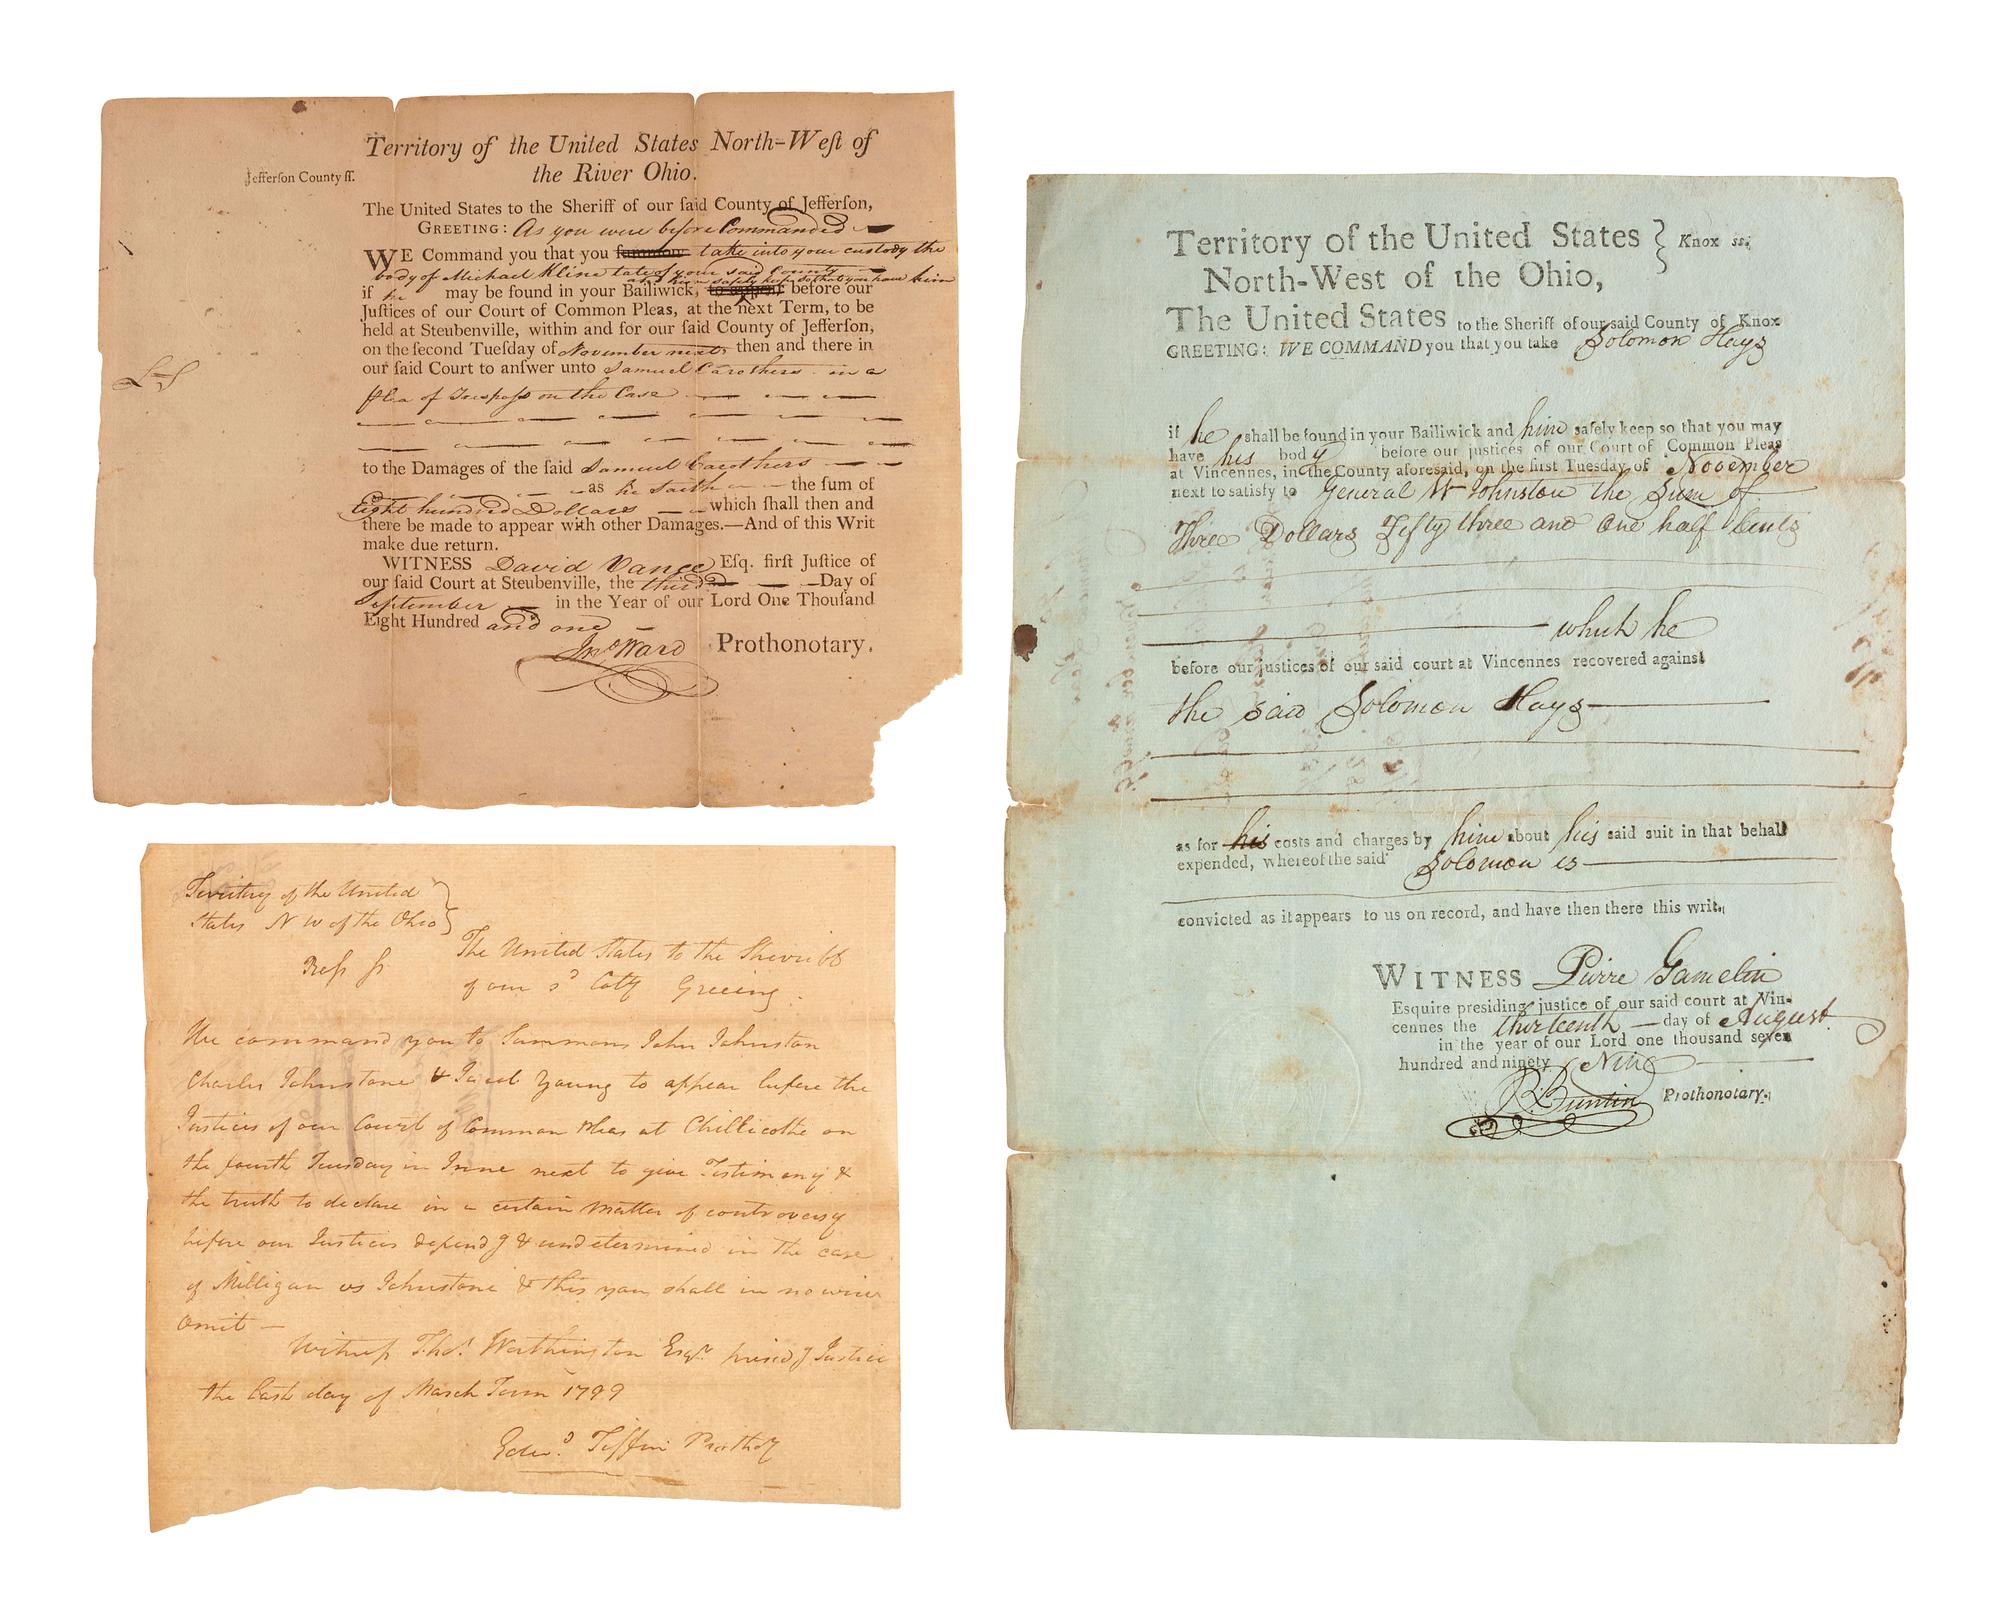 Territory of the United States North-Weſt of
the River Ohio.
Jefferſon County ſſ.
The United States to the Sheriff of our ſaid County of Jefferſon,
GREETING: As you were before Commanded
WE Command you that you ſummon take into your custody the
body of Michael Kline late of your said County
and him safely keep so that you have him
if he may be found in your Bailiwick, to appear before our
Juſtices of our Court of Common Pleas, at the next Term, to be
held at Steubenville, within and for our ſaid County of Jefferſon,
on the ſecond Tueſday of November next then and there in
our ſaid Court to anſwer unto Samuel Carothers in a
plea of Trespaſs on the Case
to the Damages of the ſaid Samuel Carothers
as he saith the ſum of
Eight hundred Dollars which ſhall then and
there be made to appear with other Damages.—And of this Writ
make due return.
WITNESS David Vance Eſq. firſt Juſtice of
our ſaid Court at Steubenville, the third Day of
September in the Year of our Lord One Thouſand
Eight Hundred and one
Jno Ward Prothonotary.
L S
Territory of the United
States N W of the Ohio
Roſs ſs
The United States to the Sherriff
of our sd Coty Greeing:
We command you to Summons John Johnston
Charles Johnstone & Jacob Young to appear before the
Justices of our Court of Common Pleas at Chillicothe on
the fourth Tuesday in June next to give Testimony &
the truth to declare in a certain matter of controversy
before our Justices dependg & undetermined in the case
of Milligan vs Johnstone & this you shall in no wise
omit —
Witneſs Thos. Worthington Esqr. presidg Justice
the last day of March Term 1799
Edwd. Tiffin Prothoy
Territory of the United States } Knox ss;
North-West of the Ohio,
The United States to the Sheriff of our said County of Knox
GREETING: WE COMMAND you that you take Solomon Hays
if he shall be found in your Bailiwick and him safely keep so that you may
have his body before our justices of our Court of Common Pleas
at Vincennes, in the County aforesaid, on the first Tuesday of November
next to satisfy to General W Johnston the Sum of
Three Dollars Fifty three and One half Cents
which he
before our justices of our said court at Vincennes recovered against
the said Solomon Hays
as for his costs and charges by him about his said suit in that behalf
expended, whereof the said Solomon is
convicted as it appears to us on record, and have then there this writ.
WITNESS Pierre Gamelin
Esquire presiding justice of our said court at Vin-
cennes the thirteenth day of August
in the year of our Lord one thousand seven
hundred and ninety Nine
R. Buntin Prothonotary.